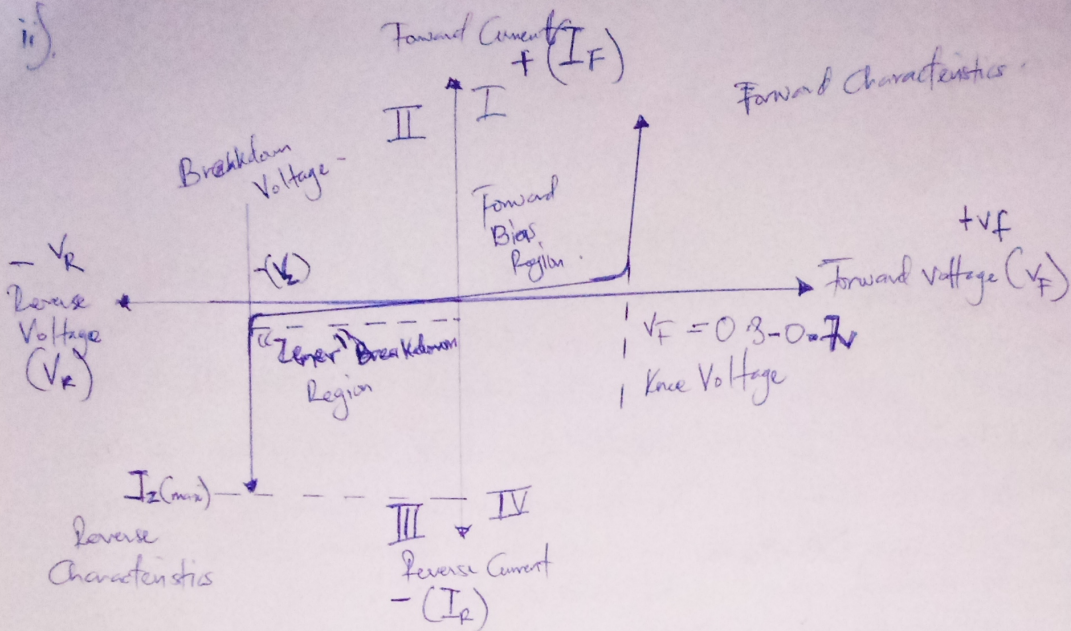 ii).
Forward Current
+ (I_F)
II
I
Forward Characteristics.
Breakdown
Voltage -
Forward
Bias
Region.
-(V_Z)
+vf
Forward Voltage (V_F)
- V_R
Reverse
Voltage
(V_R)
"Zener" Breakdown
Region
V_F = 0.3-0.7v
Knee Voltage
I_Z(max)
Reverse
Characteristics
III
IV
Reverse Current
- (I_R)